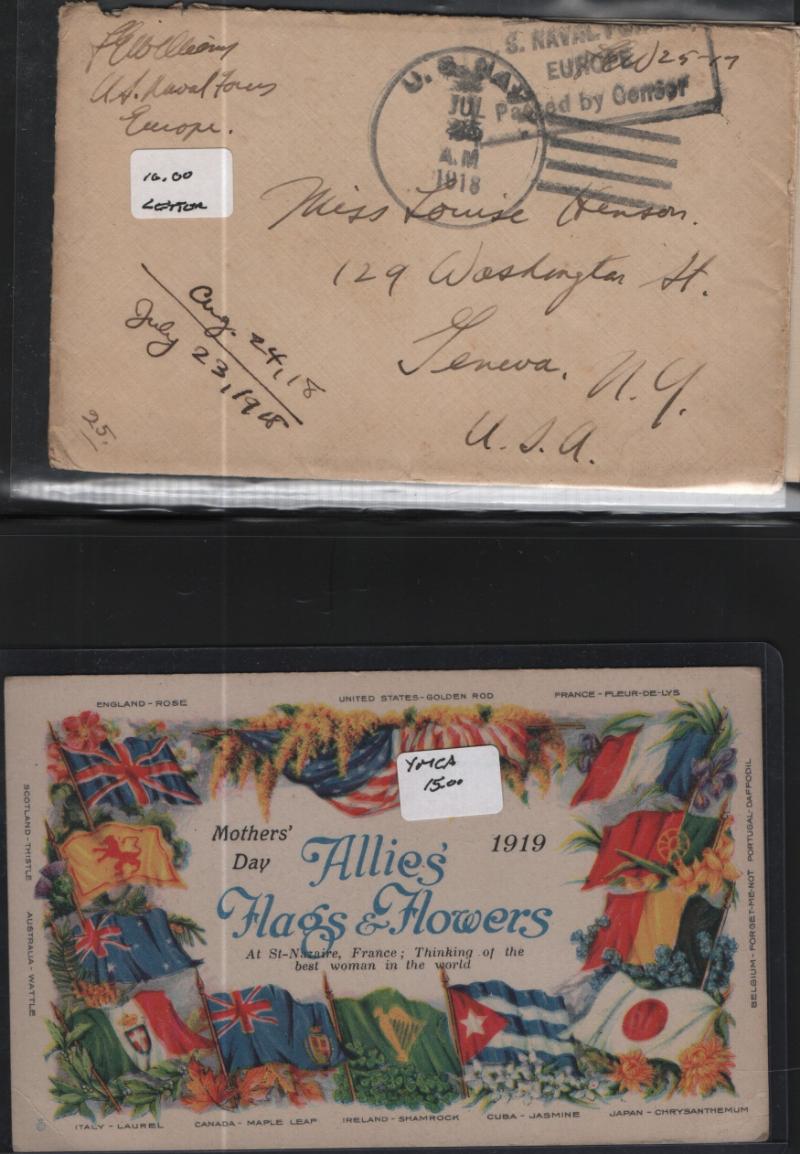 U.S. Naval Forces
Europe.
S. NAVAL
EUROPE
Passed by Censor
25-17
U.S. NAVY
JUL
25
A.M
1918
10.00
LETTER
Miss Louise Henson.
129 Washington St.
Geneva, N.Y.
U.S.A.
Aug. 24, 18
July 23, 1918
25.
ENGLAND - ROSE
UNITED STATES - GOLDEN ROD
FRANCE - FLEUR-DE-LYS
SCOTLAND - THISTLE
AUSTRALIA - WATTLE
PORTUGAL - DAFFODIL
BELGIUM - FORGET-ME-NOT
YMCA
15.00
Mothers'
Day
1919
Allies'
Flags & Flowers
At St-Nazaire, France; Thinking of the
best woman in the world
ITALY - LAUREL
CANADA - MAPLE LEAF
IRELAND - SHAMROCK
CUBA - JASMINE
JAPAN - CHRYSANTHEMUM